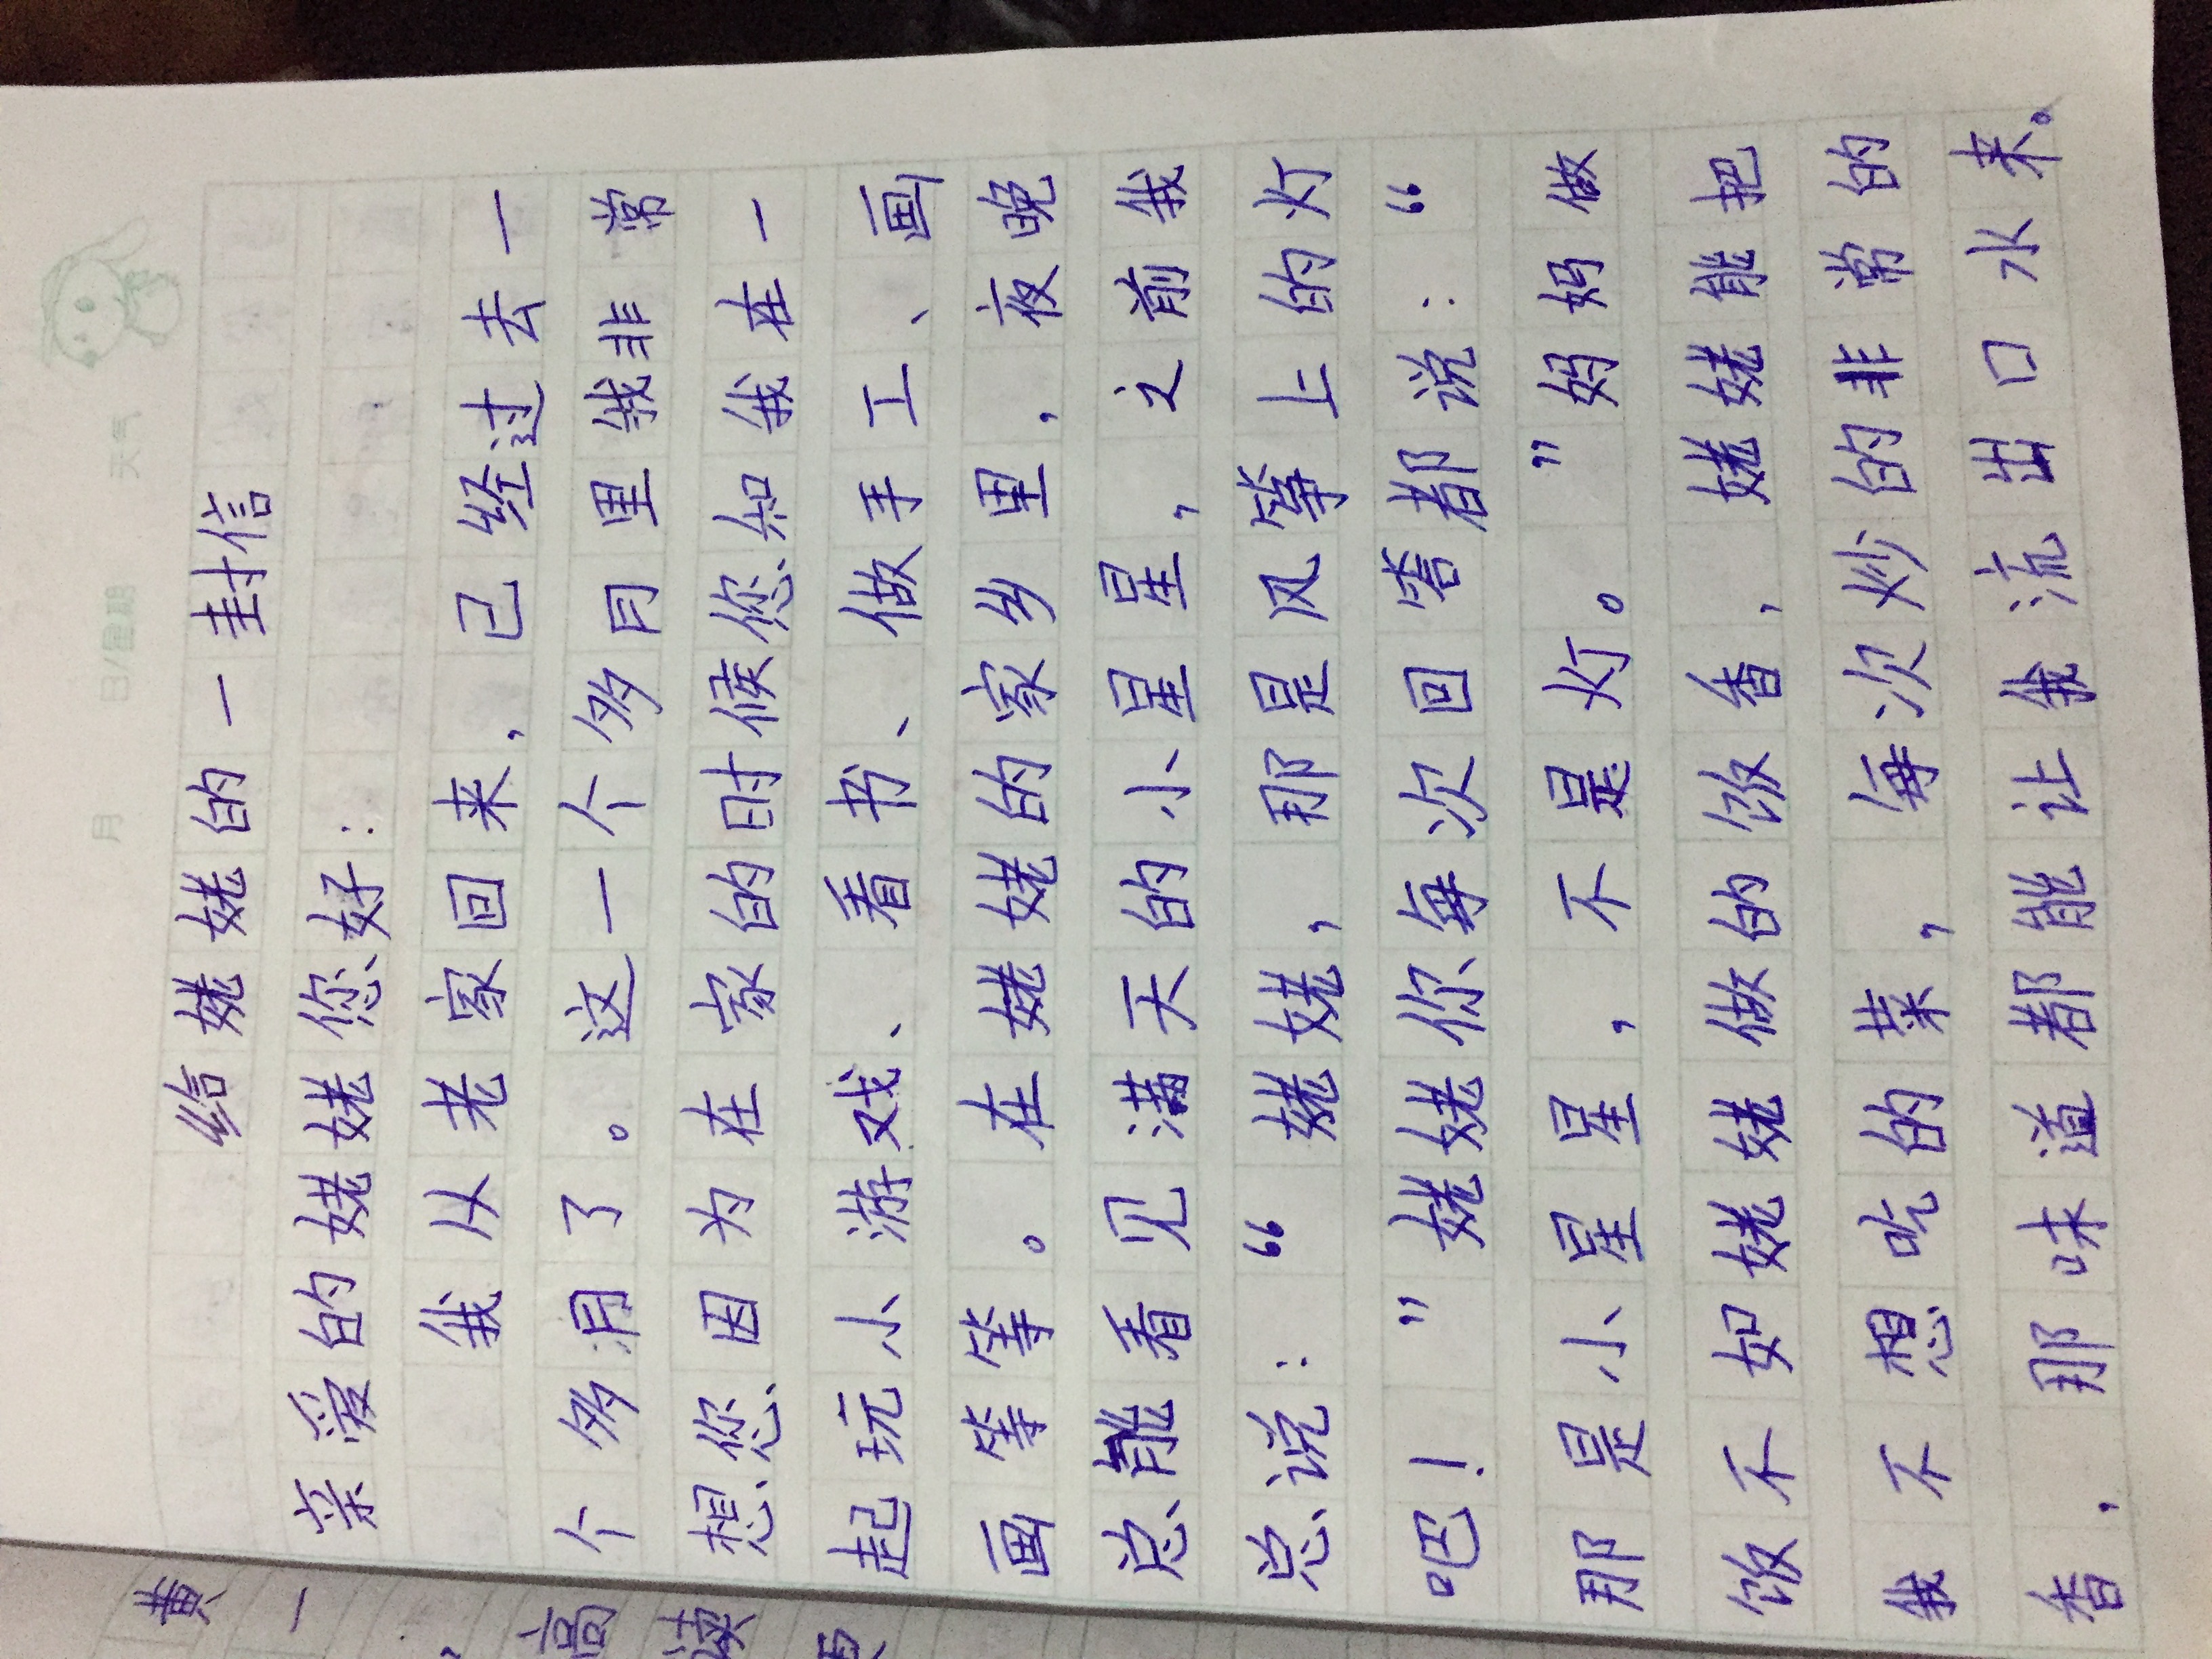 月 日/星期 天气
给姥姥的一封信
亲爱的姥姥您好：
我从老家回来，已经过去一
个多月了。这一个多月里我非常
想您，因为在家的时候您知我在一
起玩小游戏、看书、做手工、画
画等等。在姥姥的家乡里，夜晚
总能看见满天的小星星，之前我
总说：“姥姥，那是风筝上的灯
吧！”姥姥你每次回答都说：“
那是小星星，不是灯。”妈妈做
饭不如姥姥做的饭香，姥姥能把
我不想吃的菜，每次炒的非常的
香，那味道都能让我流出口水来。
黄
一
，高
读